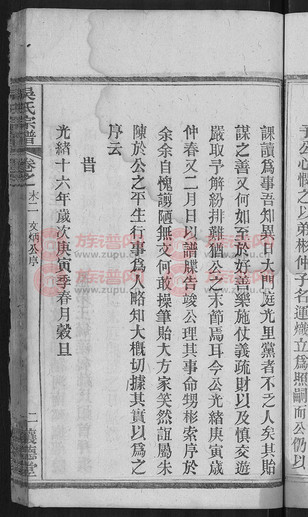 于公心慱之以弟彬仲子名運熾立為照嗣而公仍以
課讀為事吾知異日大門庭光里黨者不乏人矣其貽
謀之善又何如至於好善樂施仗義疏財以及慎交遊
嚴取予解紛排難猶公之末節焉耳今公光緒庚寅歲
仲春又二月日以譜牒告竣公理其事命甥彬索序於
余余自愧謭陋無文何敢操筆貽大方家笑然誼屬朱
陳於公之平生行事為人略知大概切據其實以為之
序云
旹
光緒十六年歲次庚寅季春月穀旦
吳氏宗譜
卷之一
末二
文炳公序
二
議德堂
族谱网
www.zupu.cn